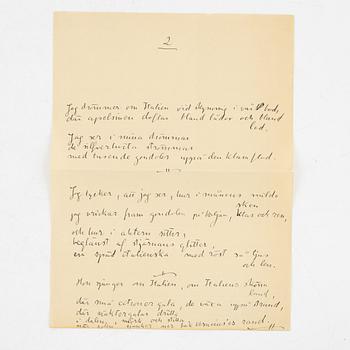 2
Jag drömmer om Italien vid skymning i vår bod,
där apelsinen doftar bland lådor och bland
lod.
Jag ser i mina drömmar
de silfverhvita strömmar
med tusende gondoler uppå den klara flod.
Jag tycker, att jag ser, hur i månens milda
sken
jag vrickar fram gondolen på böljan, klar och ren,
och hur i aktern sitter,
beglänst af stjärnans glitter,
en späd italienska med röst så ljus
och len.
Hon sjunger om Italien, om Italiens sköna
land,
där små citroner gula, de växa uppå strand,
där näktergalar drilla
i dalen, mörk och stilla